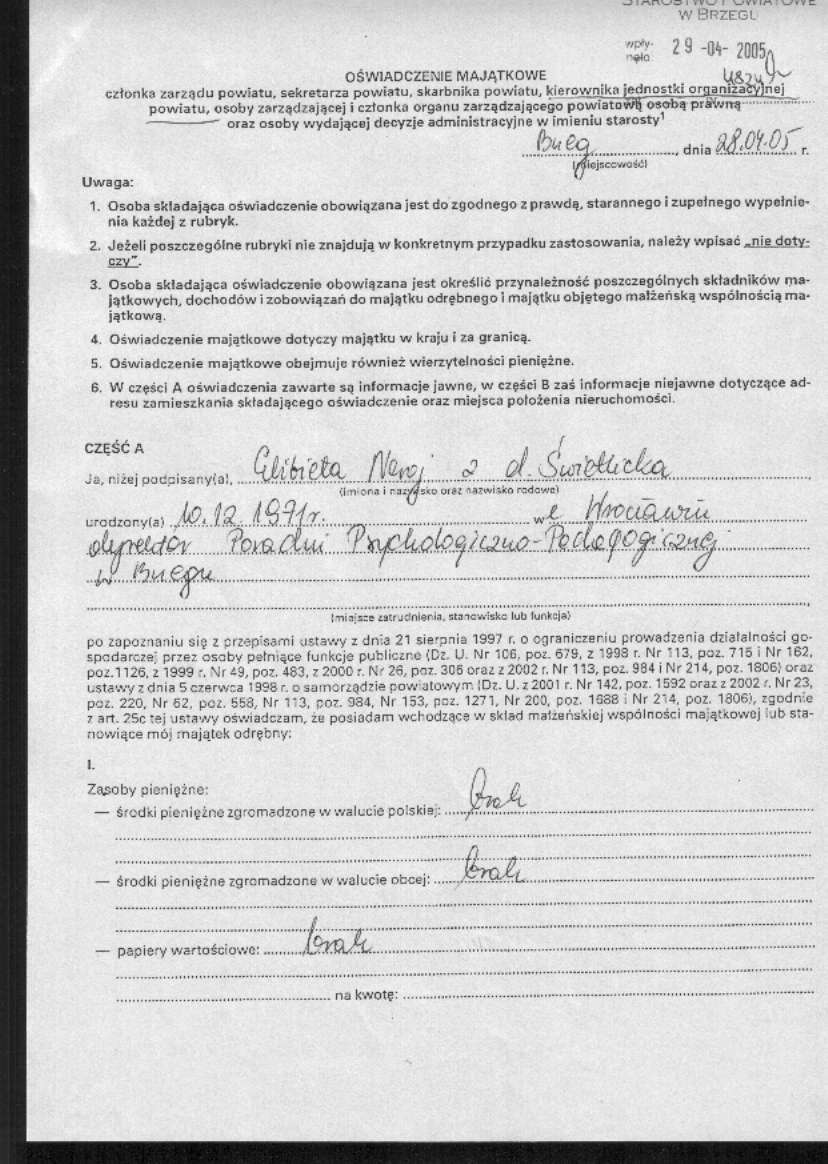 STAROSTWO POWIATOWE
W BRZEGU
wpły-
nęło: 29 -04- 2005
OŚWIADCZENIE MAJĄTKOWE
członka zarządu powiatu, sekretarza powiatu, skarbnika powiatu, kierownika jednostki organizacyjnej
powiatu, osoby zarządzającej i członka organu zarządzającego powiatową osobą prawną
oraz osoby wydającej decyzje administracyjne w imieniu starosty¹
Brzeg, dnia 28.04.05 r.
(miejscowość)
Uwaga:
1. Osoba składająca oświadczenie obowiązana jest do zgodnego z prawdą, starannego i zupełnego wypełnie-
nia każdej z rubryk.
2. Jeżeli poszczególne rubryki nie znajdują w konkretnym przypadku zastosowania, należy wpisać „nie doty-
czy".
3. Osoba składająca oświadczenie obowiązana jest określić przynależność poszczególnych składników ma-
jątkowych, dochodów i zobowiązań do majątku odrębnego i majątku objętego małżeńską wspólnością ma-
jątkową.
4. Oświadczenie majątkowe dotyczy majątku w kraju i za granicą.
5. Oświadczenie majątkowe obejmuje również wierzytelności pieniężne.
6. W części A oświadczenia zawarte są informacje jawne, w części B zaś informacje niejawne dotyczące ad-
resu zamieszkania składającego oświadczenie oraz miejsca położenia nieruchomości.
CZĘŚĆ A
Ja, niżej podpisany(a), Elżbieta z d. Świetlicka,
(imiona i nazwisko oraz nazwisko rodowe)
urodzony(a) 10.12.1971r. w Wrocławiu
dyrektor Poradni Psychologiczno-Pedagogicznej
w Brzegu
(miejsce zatrudnienia, stanowisko lub funkcja)
po zapoznaniu się z przepisami ustawy z dnia 21 sierpnia 1997 r. o ograniczeniu prowadzenia działalności go-
spodarczej przez osoby pełniące funkcje publiczne (Dz. U. Nr 106, poz. 679, z 1998 r. Nr 113, poz. 715 i Nr 162,
poz.1126, z 1999 r. Nr 49, poz. 483, z 2000 r. Nr 26, poz. 306 oraz z 2002 r. Nr 113, poz. 984 i Nr 214, poz. 1806) oraz
ustawy z dnia 5 czerwca 1998 r. o samorządzie powiatowym (Dz. U. z 2001 r. Nr 142, poz. 1592 oraz z 2002 r. Nr 23,
poz. 220, Nr 62, poz. 558, Nr 113, poz. 984, Nr 153, poz. 1271, Nr 200, poz. 1688 i Nr 214, poz. 1806), zgodnie
z art. 25c tej ustawy oświadczam, że posiadam wchodzące w skład małżeńskiej wspólności majątkowej lub sta-
nowiące mój majątek odrębny:
I.
Zasoby pieniężne:
— środki pieniężne zgromadzone w walucie polskiej: brak
— środki pieniężne zgromadzone w walucie obcej: brak
— papiery wartościowe: brak
na kwotę: